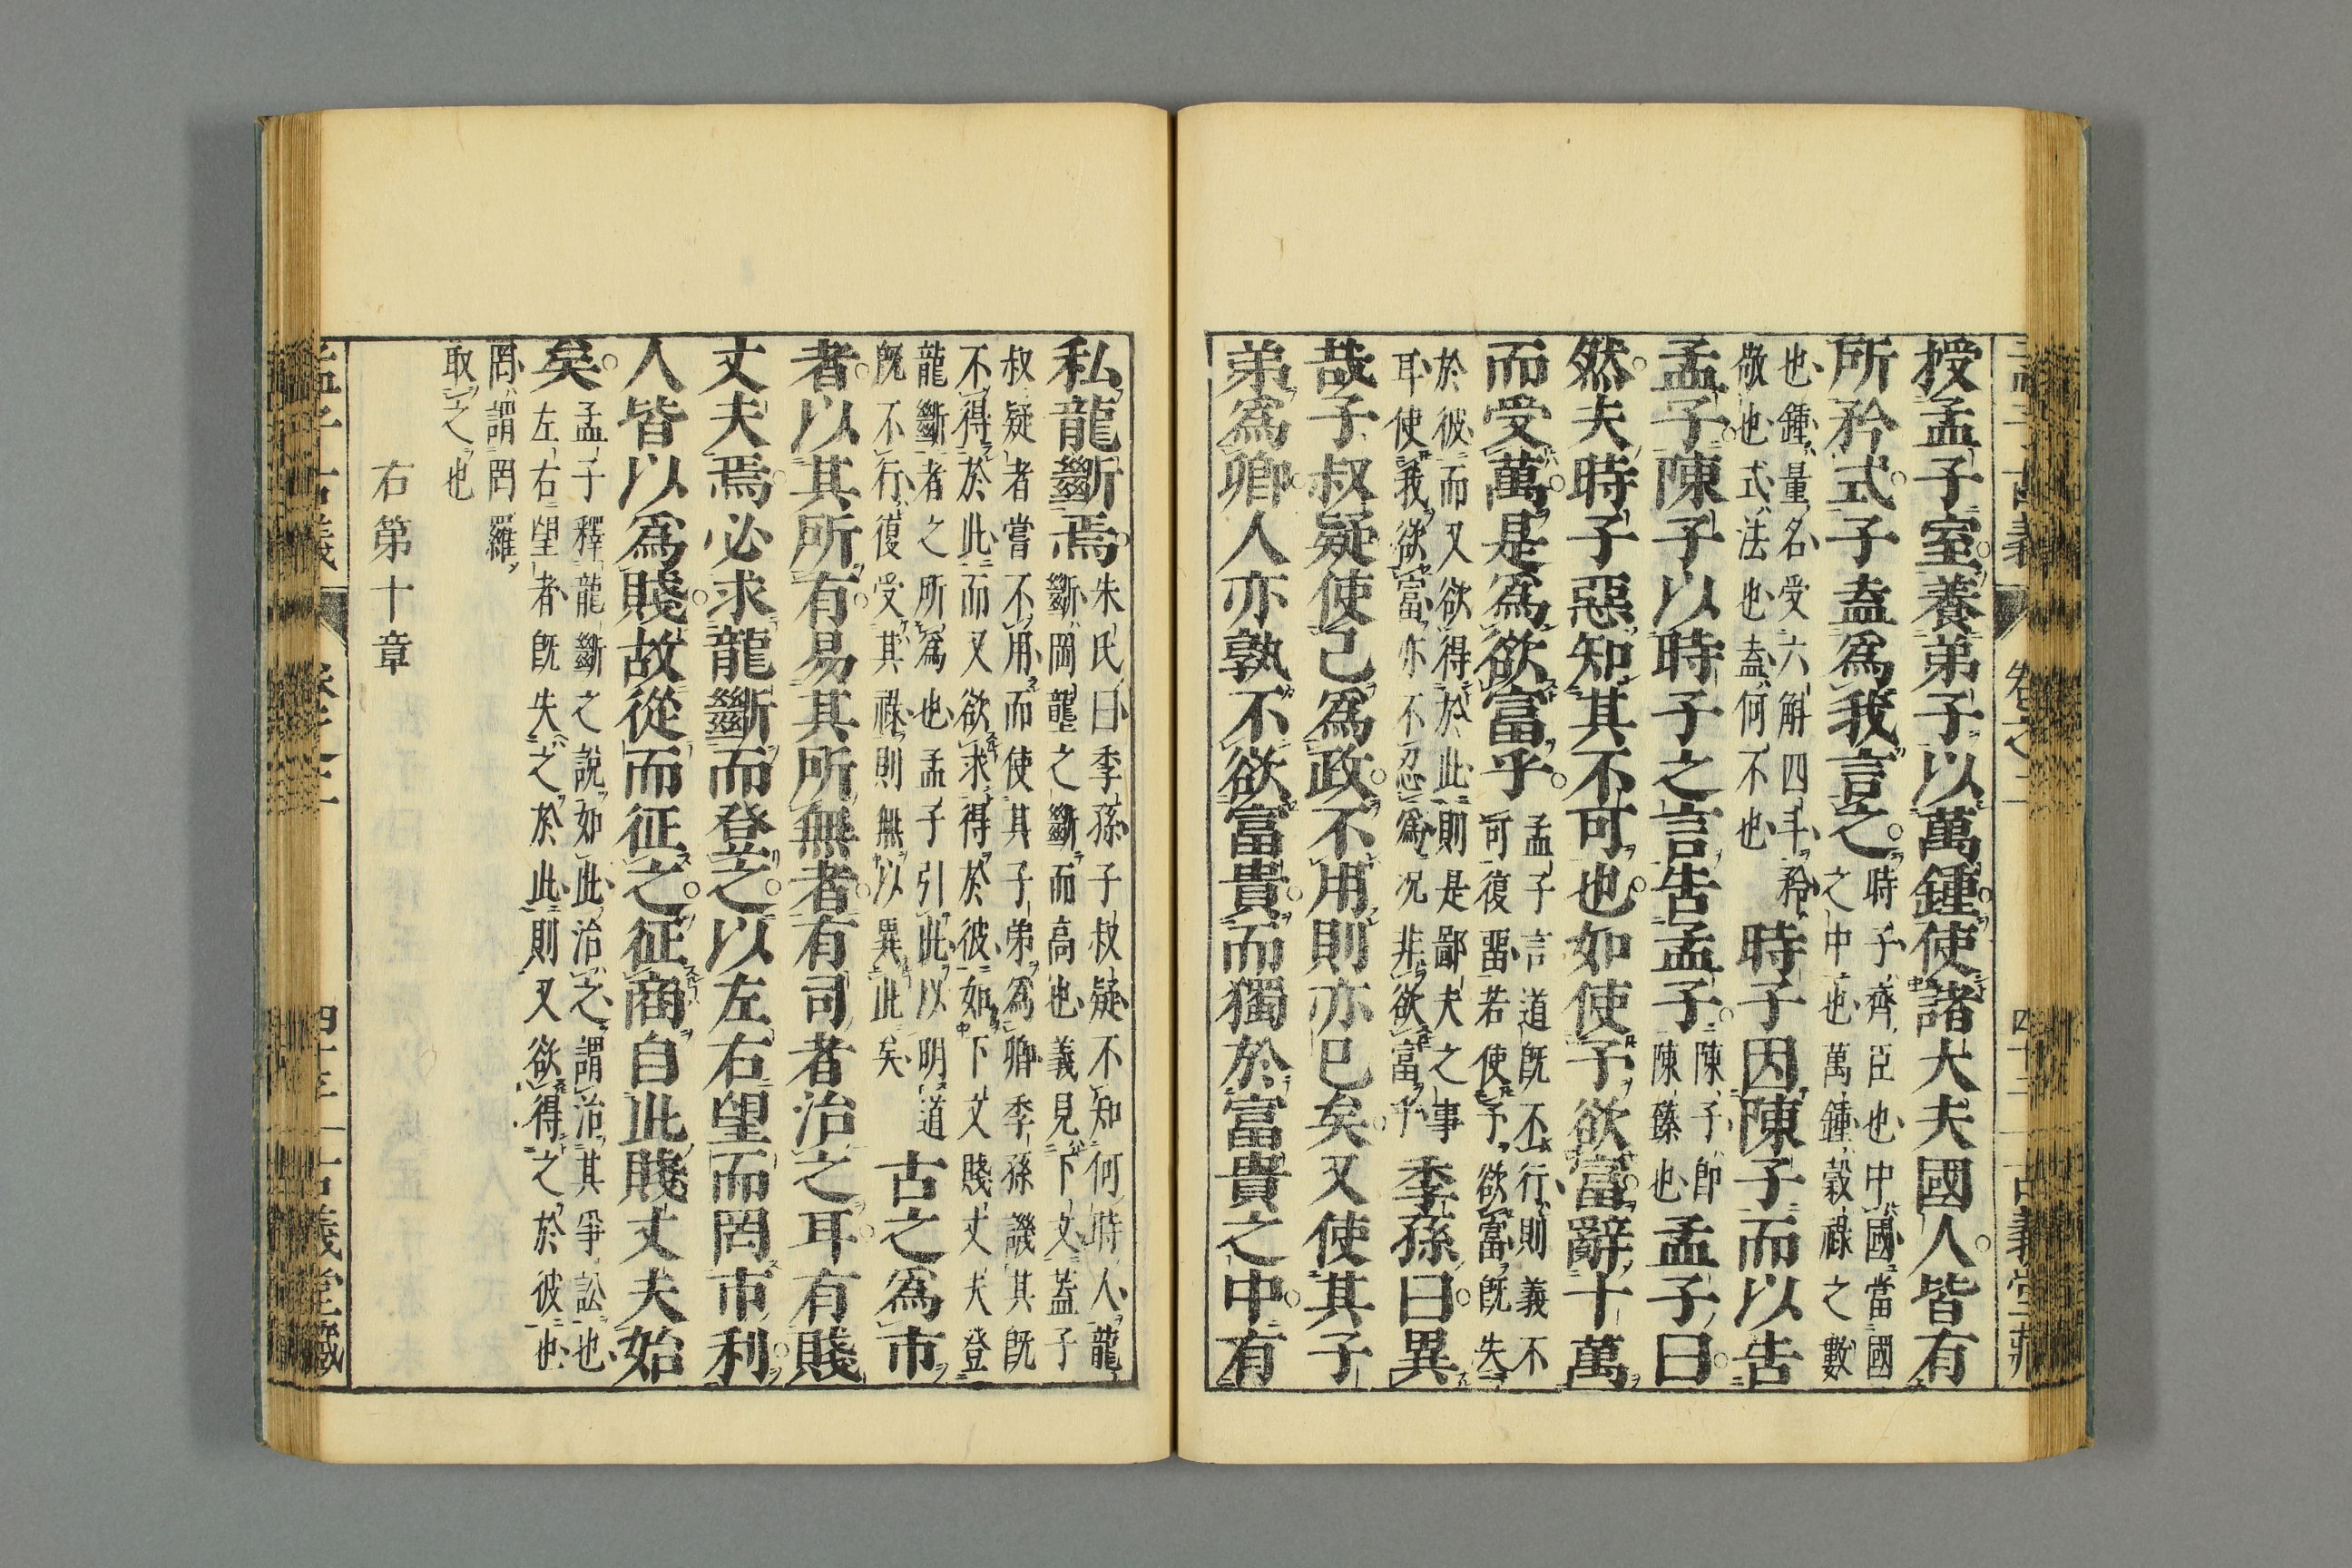 授孟子室養弟子以萬鍾使諸大夫國人皆有
所矜式子盍爲我言之
時子齊臣也中國當國
之中也萬鍾穀祿之數
也鍾量名受六斛四斗矜
敬也式法也盍何不也
時子因陳子而以告
孟子陳子以時子之言告孟子
陳子即
陳臻也
孟子曰
然夫時子惡知其不可也如使予欲富辭十萬
而受萬是爲欲富乎
孟子言道旣不行則義不
可復畱若使予欲富旣失
於彼而又欲得於此則是鄙夫之事
耳使我欲富亦不忍爲况非欲富乎
季孫曰異
哉子叔疑使己爲政不用則亦已矣又使其子
弟爲卿人亦孰不欲富貴而獨於富貴之中有
私龍斷焉
朱氏曰季孫子叔疑不知何時人龍
斷岡壟之斷而高也義見下文蓋子
叔疑者嘗不用而使其子弟爲卿季孫譏其旣
不得於此而又欲求得於彼如下文賤丈夫登
龍斷者之所爲也孟子引此以明道
旣不行復受其祿則無以異此矣
古之爲市
者以其所有易其所無者有司者治之耳有賤
丈夫焉必求龍斷而登之以左右望而罔市利
人皆以爲賤故從而征之征商自此賤丈夫始
矣
孟子釋龍斷之說如此治之謂治其爭訟也
左右望者旣失之於此則又欲得之於彼也
罔謂罔羅
取之也
右第十章